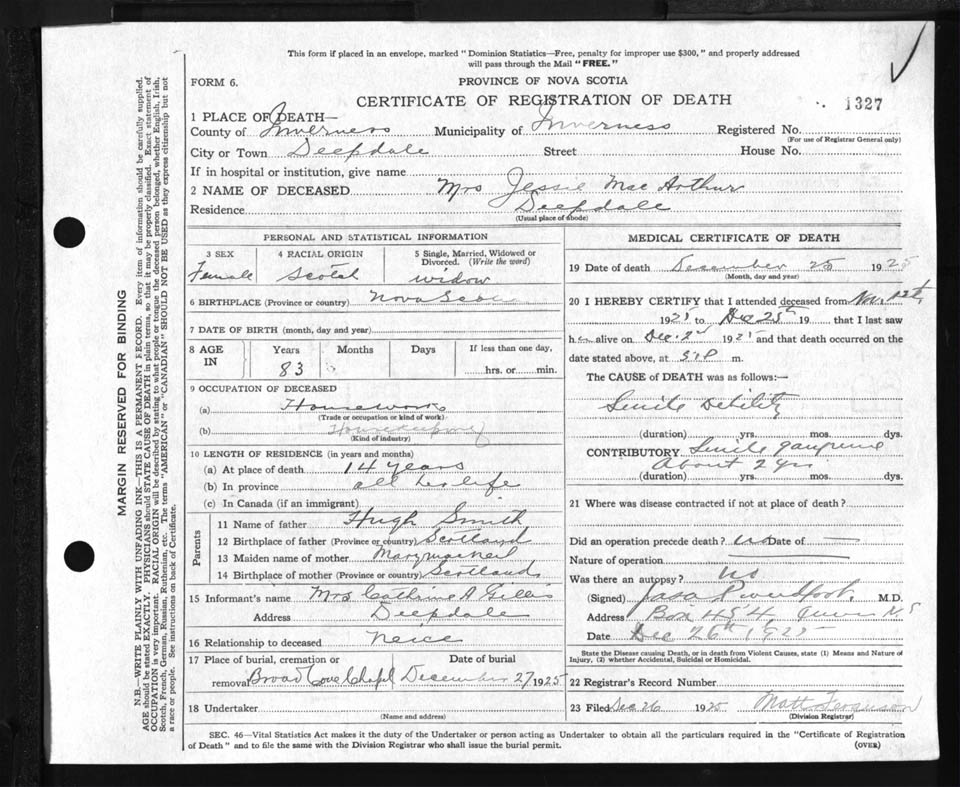 This form if placed in an envelope, marked "Dominion Statistics—Free, penalty for improper use $300," and properly addressed
will pass through the Mail "FREE."
FORM 6.
PROVINCE OF NOVA SCOTIA
CERTIFICATE OF REGISTRATION OF DEATH
1327
1 PLACE OF DEATH—
County of Inverness Municipality of Inverness Registered No.
(For use of Registrar General only)
City or Town Deepdale Street House No.
If in hospital or institution, give name
2 NAME OF DECEASED Mrs Jessie MacArthur
Residence Deepdale
(Usual place of abode)
PERSONAL AND STATISTICAL INFORMATION
3 SEX
Female
4 RACIAL ORIGIN
Scotch
5 Single, Married, Widowed or
Divorced. (Write the word)
widow
6 BIRTHPLACE (Province or country) Nova Scotia
7 DATE OF BIRTH (month, day and year)
8 AGE
IN
Years
83
Months
Days
If less than one day,
hrs. or min.
9 OCCUPATION OF DECEASED
(a) Housework
(Trade or occupation or kind of work)
(b) Housekeeping
(Kind of industry)
10 LENGTH OF RESIDENCE (in years and months)
(a) At place of death 14 years
(b) In province all her life
(c) In Canada (if an immigrant)
Parents
11 Name of father Hugh Smith
12 Birthplace of father (Province or country) Scotland
13 Maiden name of mother Mary MacNeil
14 Birthplace of mother (Province or country) Scotland
15 Informant's name Mrs Catherine A Gillis
Address Deepdale
16 Relationship to deceased Neice
17 Place of burial, cremation or
Date of burial
removal Broad Cove Chapel December 27 1925
18 Undertaker
(Name and address)
MEDICAL CERTIFICATE OF DEATH
19 Date of death December 25 1925
(Month, day and year)
20 I HEREBY CERTIFY that I attended deceased from Nov. 12th
1925 to Dec 25th 19 that I last saw
her alive on Dec. 2nd 1925 and that death occurred on the
date stated above, at m.
The CAUSE of DEATH was as follows:—
Senile Debility
(duration) yrs. mos. dys.
CONTRIBUTORY Senile gangrene
About 2 yrs
(duration) yrs. mos. dys.
21 Where was disease contracted if not at place of death?
Did an operation precede death? no Date of —
Nature of operation
Was there an autopsy? no
(Signed) M.D.
Address Box 454 N S
Date Dec 26th 1925
State the Disease causing Death, or in death from Violent Causes, state (1) Means and Nature of
Injury, (2) whether Accidental, Suicidal or Homicidal.
22 Registrar's Record Number
23 Filed Dec 26 1925 Matt Ferguson
(Division Registrar)
SEC. 46—Vital Statistics Act makes it the duty of the Undertaker or person acting as Undertaker to obtain all the particulars required in the "Certificate of Registration
of Death" and to file the same with the Division Registrar who shall issue the burial permit.
(OVER)
MARGIN RESERVED FOR BINDING
N.B.—WRITE PLAINLY WITH UNFADING INK—THIS IS A PERMANENT RECORD. Every item of information should be carefully supplied.
AGE should be stated EXACTLY. PHYSICIANS should STATE CAUSE OF DEATH in plain terms, so that it may be properly classified. Exact statement of
OCCUPATION is very important. RACIAL ORIGIN will be described by stating to what people or tongue the deceased person belonged, whether English, Irish,
Scotch, French, German, Russian, Ruthenian, etc. The terms "AMERICAN" or "CANADIAN" SHOULD NOT BE USED as they express citizenship but not
a race or people. See instructions on back of Certificate.